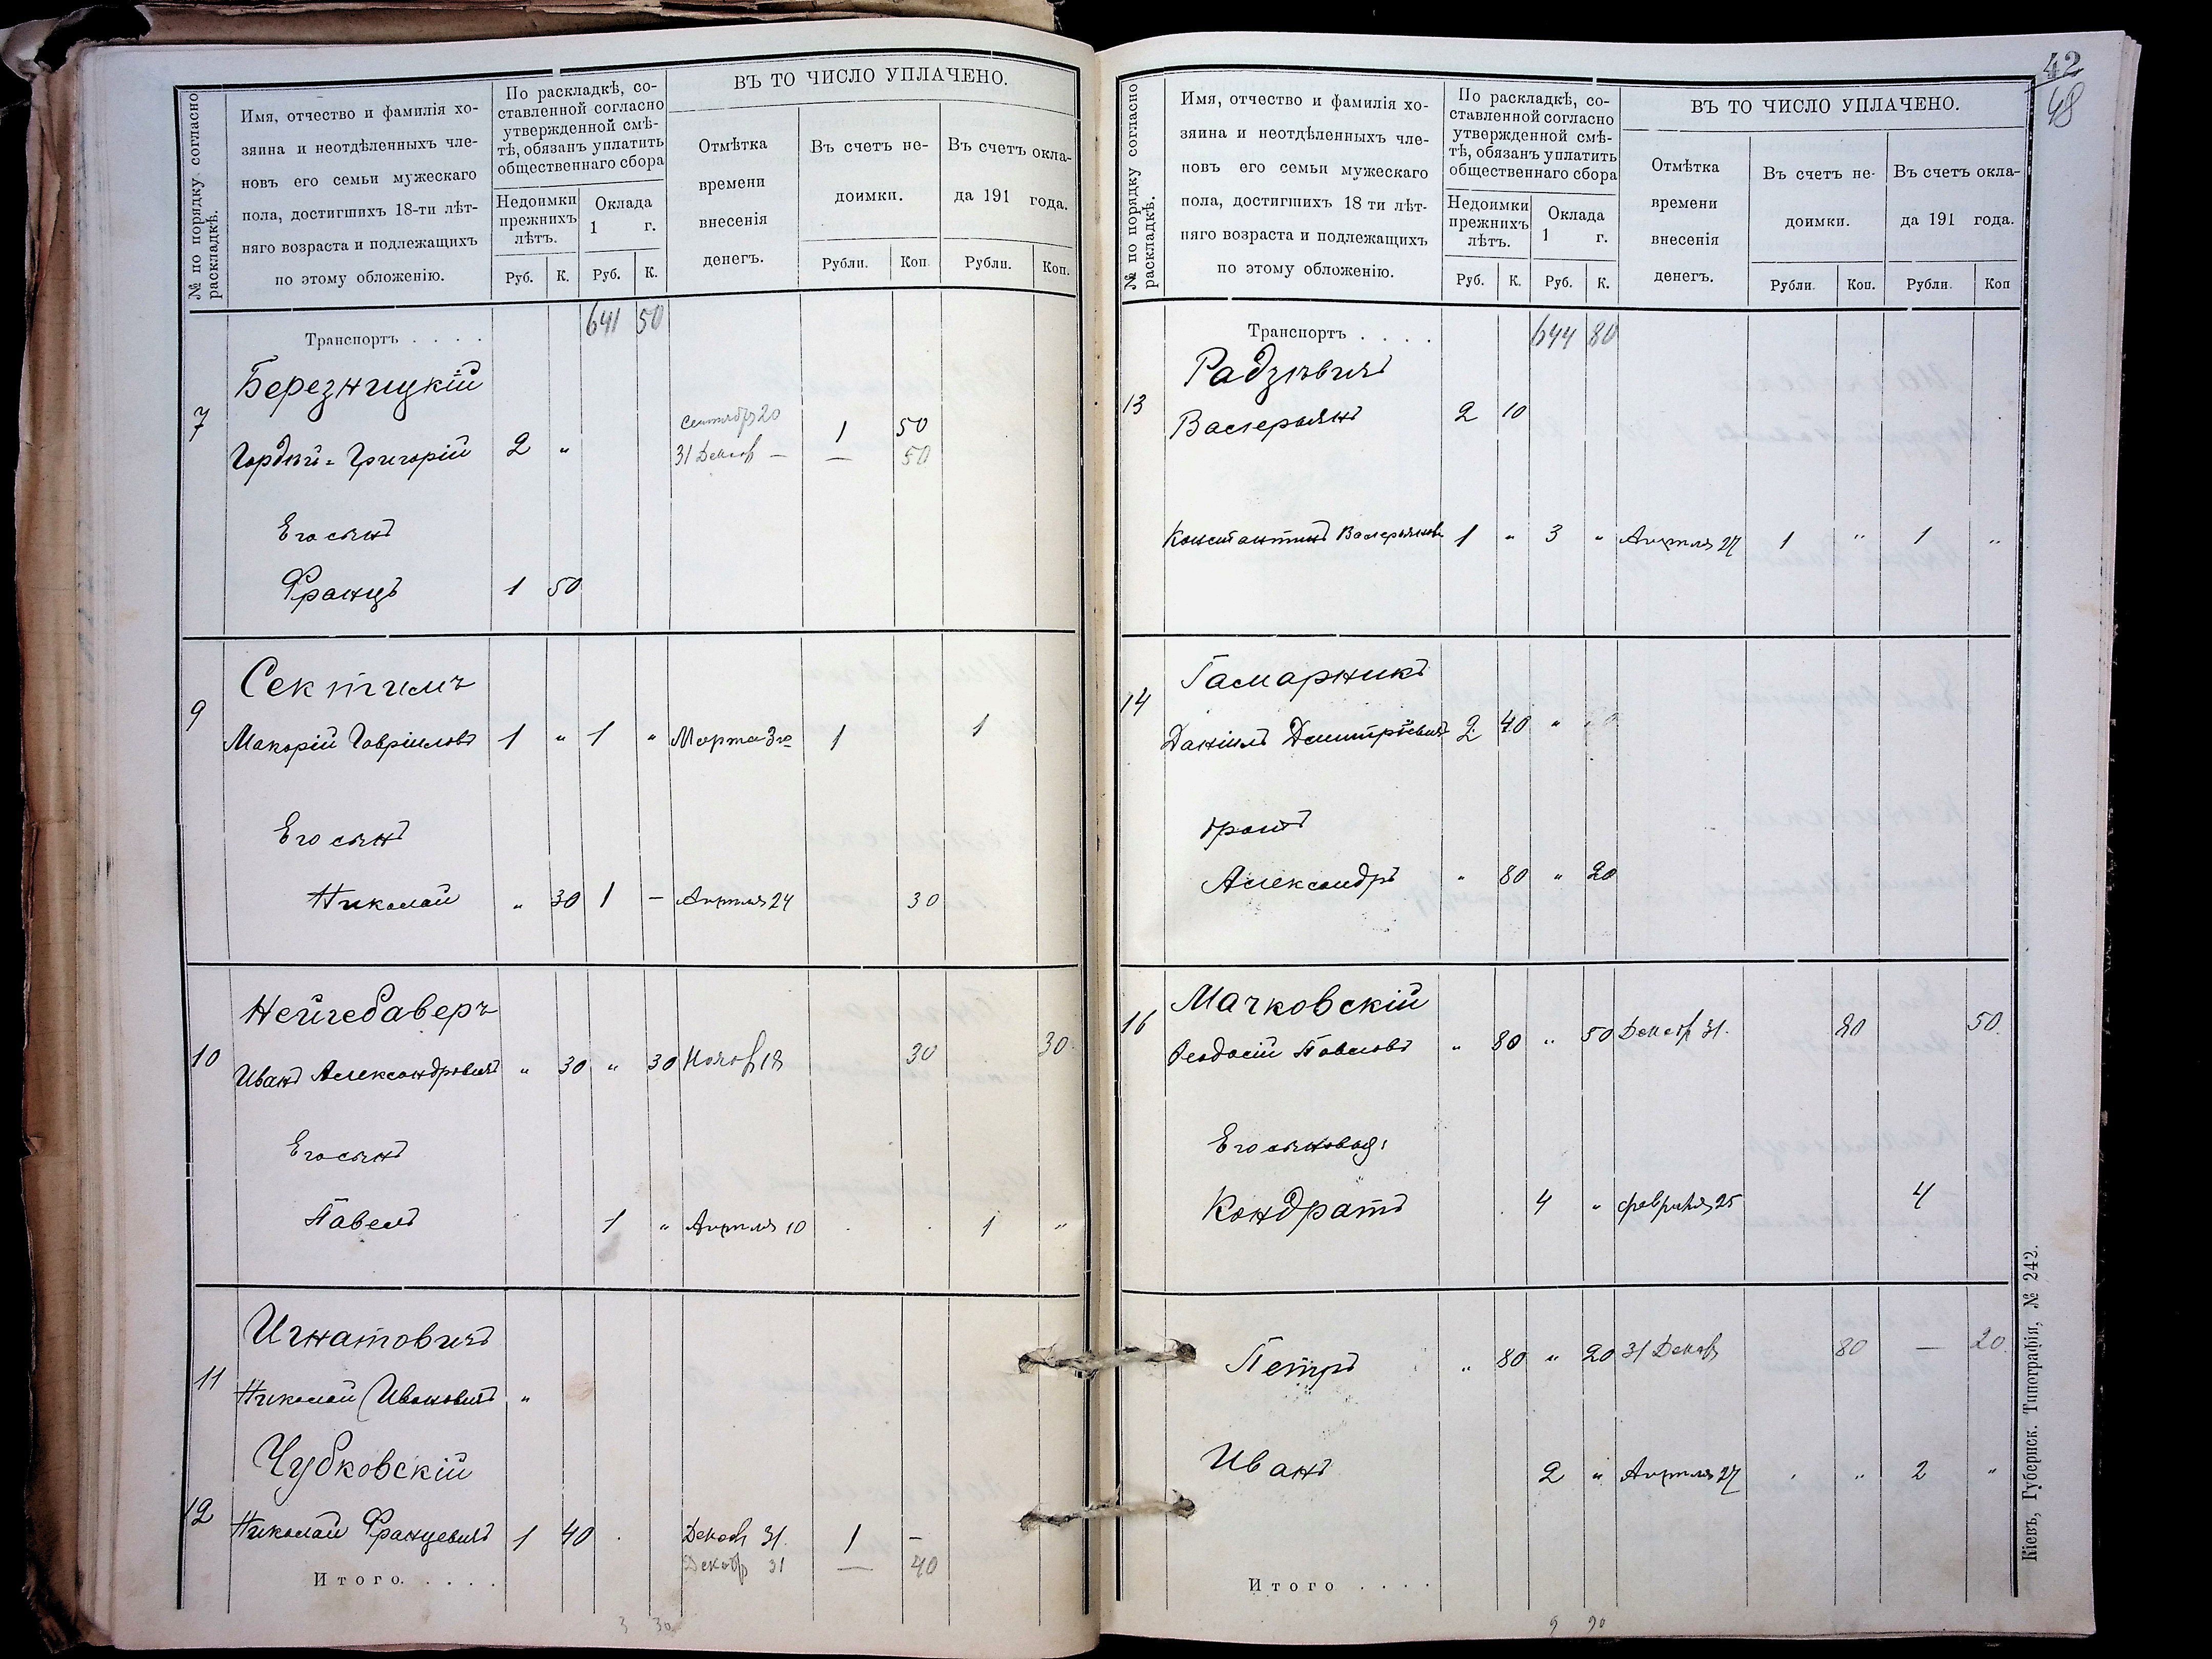 № по порядку согласно раскладкѣ.
Имя, отчество и фамилія хо-
зяина и неотдѣленныхъ чле-
новъ его семьи мужескаго
пола, достигшихъ 18-ти лѣт-
няго возраста и подлежащихъ
по этому обложенію.
По раскладкѣ, со-
ставленной согласно
утвержденной смѣ-
тѣ, обязанъ уплатить
общественнаго сбора
Недоимки
прежнихъ
лѣтъ.
Оклада
1 г.
Руб. К. Руб. К.
ВЪ ТО ЧИСЛО УПЛАЧЕНО.
Отмѣтка
времени
внесенія
денегъ.
Въ счетъ не-
доимки.
Въ счетъ окла-
да 191 года.
Рубли. Коп. Рубли. Коп.
Транспортъ . . . . 641 50
Березницкій
7
Гордѣй-Григорій 2 " Сентябр 20 1 50
31 Декаб — — 50
Его сынъ
Францъ 1 50
Сектимъ
9
Макарій Гавріиловъ 1 " 1 " Марта 3го 1 1
Его сынъ
Николай " 30 1 — Апрѣля 24 30
Нейгебаверъ
10
Иванъ Александровичъ " 30 " 30 Нояб 18 30 30
Его сынъ
Павелъ 1 " Апрѣля 10 1 "
Игнатовичъ
11
Николай Ивановичъ "
Чубковскій
12
Николай Францевичъ 1 40 Декаб 31. 1 —
Декабр 31 — 40
Итого. . . . .
3 30
42
48
№ по порядку согласно раскладкѣ.
Имя, отчество и фамилія хо-
зяина и неотдѣленныхъ чле-
новъ его семьи мужескаго
пола, достигшихъ 18 ти лѣт-
няго возраста и подлежащихъ
по этому обложенію.
По раскладкѣ, со-
ставленной согласно
утвержденной смѣ-
тѣ, обязанъ уплатить
общественнаго сбора
Недоимки
прежнихъ
лѣтъ.
Оклада
1 г.
Руб. К. Руб. К.
ВЪ ТО ЧИСЛО УПЛАЧЕНО.
Отмѣтка
времени
внесенія
денегъ.
Въ счетъ не-
доимки.
Въ счетъ окла-
да 191 года.
Рубли. Коп. Рубли. Коп
Транспортъ . . . . 644 80
Радзѣвичъ
13
Валерьянъ 2 10
Константинъ Валерьяновъ 1 " 3 " Апрѣля 27 1 " 1 "
Гамарникъ
14
Даніилъ Дмитріевичъ 2 40 "
братъ
Александръ " 80 " 20
Мачковскій
16
Феодосій Павловъ " 80 " 50 Декабр 31. 80 50
Его сыновья:
Кондратъ 4 " февраля 25 4
Петръ " 80 " 20 31 Декаб 80 — 20
Иванъ 2 " Апрѣля 27 " 2 "
Итого . . . .
9 90
Кіевъ, Губернск. Типографія, № 242.